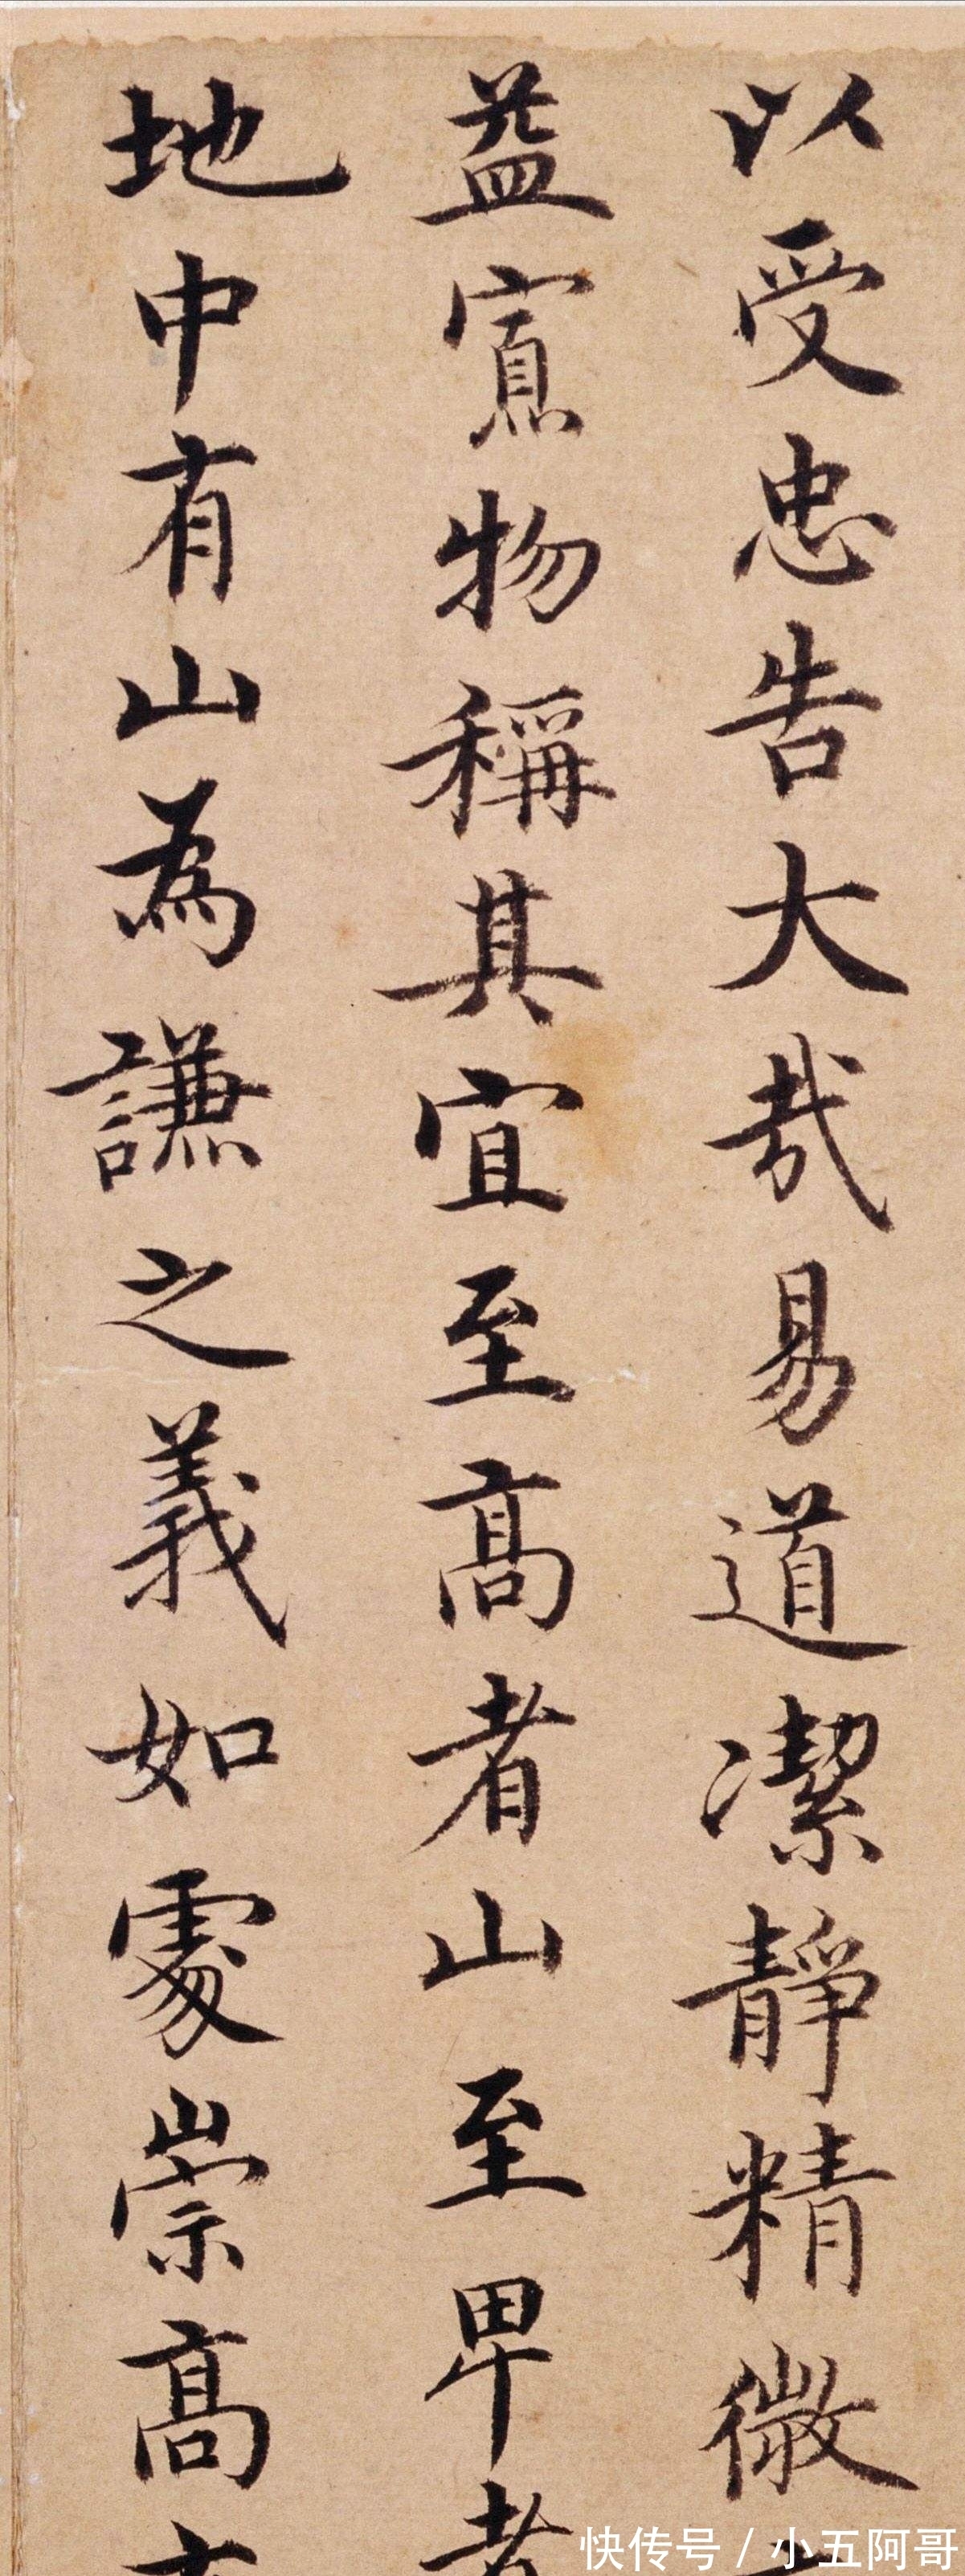 以受忠告大哉易道潔靜精微
益寡物稱其宜至高者山至卑者
地中有山為謙之義如處崇高
快传号 / 小五阿哥